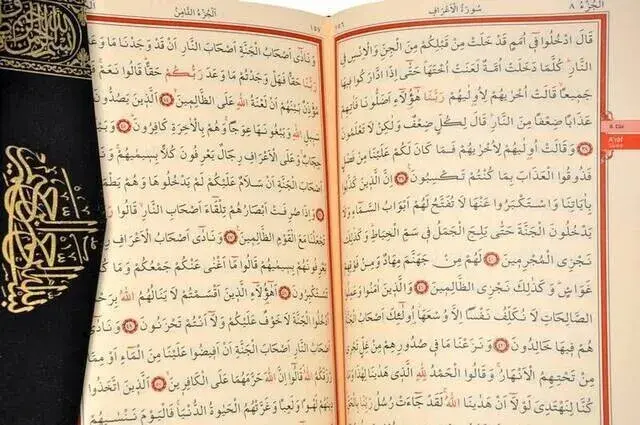 سُورَةُ الْاَعْرَافِ
اَلْجُزْءُ ٨
قَالَ ادْخُلُوا فٖٓي اُمَمٍ قَدْ خَلَتْ مِنْ قَبْلِكُمْ مِنَ الْجِنِّ وَالْاِنْسِ فِي
النَّارِؕ كُلَّمَا دَخَلَتْ اُمَّةٌ لَعَنَتْ اُخْتَهَاؕ حَتّٰٓى اِذَا ادَّارَكُوا فٖيهَا
جَمٖيعًاۙ قَالَتْ اُخْرٰيهُمْ لِاُو۫لٰيهُمْ رَبَّنَا هٰٓؤُ۬لَٓاءِ اَضَلُّونَا فَاٰتِهِمْ
عَذَابًا ضِعْفًا مِنَ النَّارِؕ قَالَ لِكُلٍّ ضِعْفٌ وَلٰكِنْ لَا تَعْلَمُونَ
٣٨ وَقَالَتْ اُو۫لٰيهُمْ لِاُخْرٰيهُمْ فَمَا كَانَ لَكُمْ عَلَيْنَا مِنْ فَضْلٍ
فَذُوقُوا الْعَذَابَ بِمَا كُنْتُمْ تَكْسِبُونَ ٣٩ اِنَّ الَّذٖينَ كَذَّبُوا
بِاٰيَاتِنَا وَاسْتَكْبَرُوا عَنْهَا لَا تُفَتَّحُ لَهُمْ اَبْوَابُ السَّمَٓاءِ وَلَا
يَدْخُلُونَ الْجَنَّةَ حَتّٰى يَلِجَ الْجَمَلُ فٖي سَمِّ الْخِيَاطِؕ وَكَذٰلِكَ
نَجْزِي الْمُجْرِمٖينَ ٤٠ لَهُمْ مِنْ جَهَنَّمَ مِهَادٌ وَمِنْ فَوْقِهِمْ
غَوَاشٍؕ وَكَذٰلِكَ نَجْزِي الظَّالِمٖينَ ٤١ وَالَّذٖينَ اٰمَنُوا وَعَمِلُوا
الصَّالِحَاتِ لَا نُكَلِّفُ نَفْسًا اِلَّا وُسْعَهَاؗ اُو۬لٰٓئِكَ اَصْحَابُ الْجَنَّةِۚ
هُمْ فٖيهَا خَالِدُونَ ٤٢ وَنَزَعْنَا مَا فٖي صُدُورِهِمْ مِنْ غِلٍّ تَجْرٖي
مِنْ تَحْتِهِمُ الْاَنْهَارُۚ وَقَالُوا الْحَمْدُ لِلّٰهِ الَّذٖي هَدٰينَا لِهٰذَا وَمَا
كُنَّا لِنَهْتَدِيَ لَوْلَٓا اَنْ هَدٰينَا اللّٰهُۚ لَقَدْ جَٓاءَتْ رُسُلُ رَبِّنَا بِالْحَقِّؕ
اَلْجُزْءُ الثَّامِنُ
١٥٧ ١٥٦
وَنَادٰٓى اَصْحَابُ الْجَنَّةِ اَصْحَابَ النَّارِ اَنْ قَدْ وَجَدْنَا مَا وَعَدَنَا
رَبُّنَا حَقًّا فَهَلْ وَجَدْتُمْ مَا وَعَدَ رَبُّكُمْ حَقًّاؕ قَالُوا نَعَمْۚ
مُؤَذِّنٌ بَيْنَهُمْ اَنْ لَعْنَةُ اللّٰهِ عَلَى الظَّالِمٖينَۙ ٤٤ اَلَّذٖينَ يَصُدُّونَ
سَبٖيلِ اللّٰهِ وَيَبْغُونَهَا عِوَجًاۚ وَهُمْ بِالْاٰخِرَةِ كَافِرُونَۘ ٤٥ وَبَيْنَهُمَا
حِجَابٌۚ وَعَلَى الْاَعْرَافِ رِجَالٌ يَعْرِفُونَ كُلًّا بِسٖيمٰيهُمْۚ وَنَادَوْا
اَصْحَابَ الْجَنَّةِ اَنْ سَلَامٌ عَلَيْكُمْ لَمْ يَدْخُلُوهَا وَهُمْ يَطْمَعُونَ
٤٦ وَاِذَا صُرِفَتْ اَبْصَارُهُمْ تِلْقَٓاءَ اَصْحَابِ النَّارِۙ قَالُوا رَبَّنَا
تَجْعَلْنَا مَعَ الْقَوْمِ الظَّالِمٖينَ ٤٧ وَنَادٰٓى اَصْحَابُ الْاَعْرَافِ رِجَالًا
يَعْرِفُونَهُمْ بِسٖيمٰيهُمْ قَالُوا مَٓا اَغْنٰى عَنْكُمْ جَمْعُكُمْ وَمَا كُنْتُمْ
تَسْتَكْبِرُونَ ٤٨ اَهٰٓؤُ۬لَٓاءِ الَّذٖينَ اَقْسَمْتُمْ لَا يَنَالُهُمُ اللّٰهُ بِرَحْمَةٍؕ
اُدْخُلُوا الْجَنَّةَ لَا خَوْفٌ عَلَيْكُمْ وَلَٓا اَنْتُمْ تَحْزَنُونَ ٤٩ وَنَادٰٓى
اَصْحَابُ النَّارِ اَصْحَابَ الْجَنَّةِ اَنْ اَفٖيضُوا عَلَيْنَا مِنَ الْمَٓاءِ اَوْ مِمَّا
رَزَقَكُمُ اللّٰهُؕ قَالُٓوا اِنَّ اللّٰهَ حَرَّمَهُمَا عَلَى الْكَافِرٖينَۙ ٥٠ اَلَّذٖينَ اتَّخَذُوا
دٖينَهُمْ لَهْوًا وَلَعِبًا وَغَرَّتْهُمُ الْحَيٰوةُ الدُّنْيَاۚ فَالْيَوْمَ نَنْسٰيهُمْ
8. Cüz
A'râf